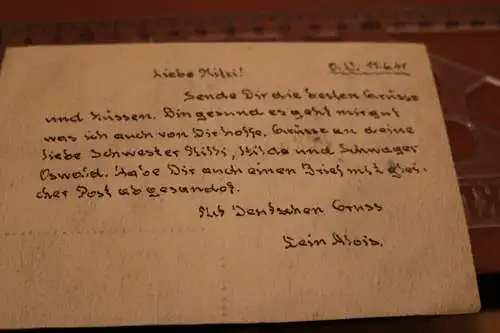 Liebe Mitzi!
O.U. 11.6.41
Sende Dir die besten Grüsse
und Küssen. Bin gesund es geht mir gut
was ich auch von Dir hoffe. Grüsse an deine
liebe Schwester Mitzi, Hilde und Schwager
Oswald. Habe Dir auch einen Brief mit glei-
cher Post abgesandt.
Mit Deutschen Gruss
Dein Alois.